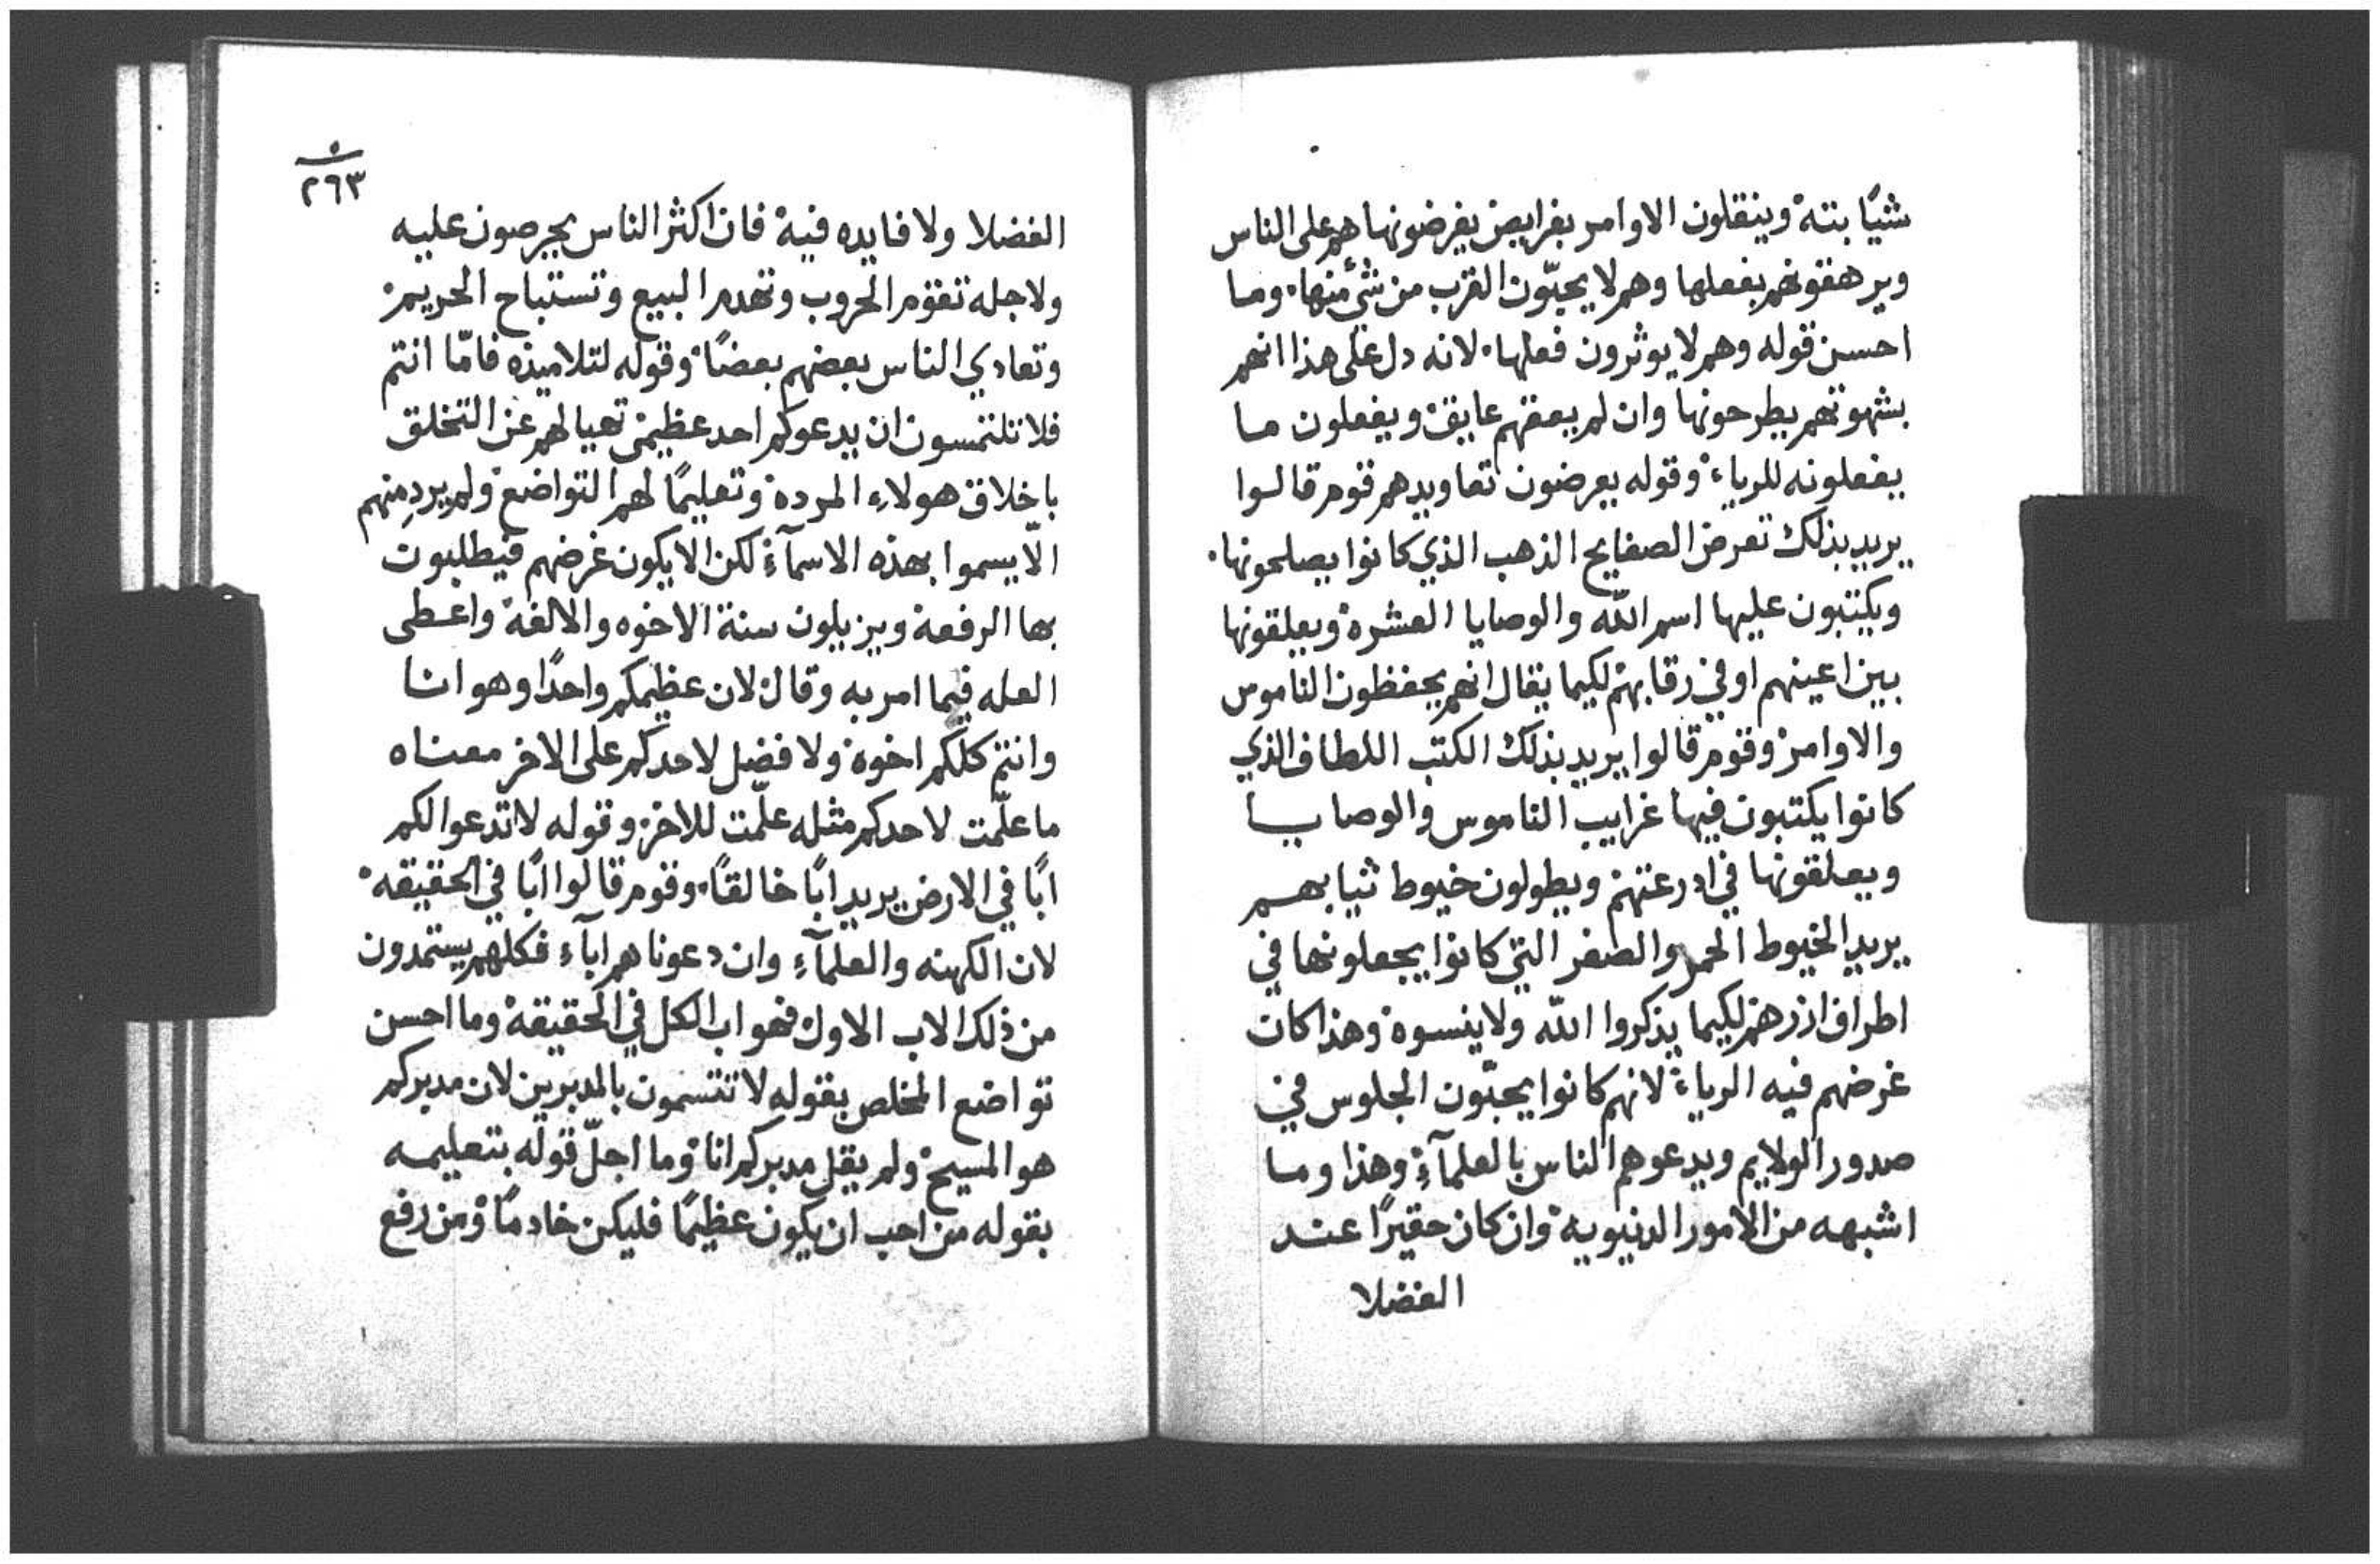 شيًا بتة وينقلون الاوامر بفرايض يفرضونها هم على الناس
ويرهقونهم بفعلها وهم لا يحبّون القرب من شئ منها. وما
احسن قوله وهم لا يوثرون فعلها. لانه دل على هذا انهم
بشهوتهم يطرحونها وان لم يعقهم عايق. ويفعلون ما
يفعلونه للرياء. وقوله يعرضون تعاويدهم قوم قالوا
يريد بذلك تعرض الصفايح الذهب الذي كانوا يصلحونها.
ويكتبون عليها اسم الله والوصايا العشره. ويعلقونها
بين اعينهم او في رقابهم. لكيما يقال انهم يحفظون الناموس
والاوامر. وقوم قالوا يريد بذلك الكتب اللطاف الذي
كانوا يكتبون فيها غرايب الناموس والوصايا
ويعلقونها في ادرعتهم. ويطولون خيوط ثيابهم
يريد الخيوط الحمر والصفر التي كانوا يجعلونها في
اطراف ازرهم. لكيما يذكروا الله ولا ينسوه. وهذا كان
غرضهم فيه الرياء. لانهم كانوا يحبّون الجلوس في
صدور الولايم ويدعوهم الناس بالعلمآء. وهذا وما
اشبهه من الامور الدنيويه. وان كان حقيرًا عند
الفضلا
٢٦٣
الفضلا ولا فايده فيه. فان اكثر الناس يحرصون عليه
ولاجله تقوم الحروب وتهدم البيع وتستباح الحريم.
وتعادي الناس بعضهم بعضًا. وقوله لتلاميذه فامّا انتم
فلا تلتمسون ان يدعوكم احد عظيم. تحيا لهم عن التخلق
باخلاق هولاء المرده. وتعليمًا لهم التواضع. ولم يردِ منهم
الّا يسموا بهذه الاسمآء. لكن الا يكون غرضهم فيطلبون
بها الرفعة ويزيلون سنة الاخوه والالفة. واعطى
العله فيما امر به وقال. لان عظيمكم واحدًا وهو انا
وانتم كلكم اخوه. ولا فضل لاحدكم على الاخر معناه
ما علّمت لاحدكم مثله علّمت للاخر. وقوله لا تدعوا لكم
ابًا في الارض يريد ابًا خالقًا. وقوم قالوا ابًا في الحقيقه.
لان الكهنه والعلمآء وان دعونا هم ابآء فكلهم يستمدون
من ذلك الاب الاول. فهو اب الكل في الحقيقة. وما احسن
تواضع المخلص بقوله لا تتسمون بالمدبرين لان مدبركم
هو المسيح. ولم يقل مدبركم انا. وما اجلّ قوله بتعليمه
بقوله من احب ان يكون عظيمًا فليكن خادمًا. ومن رفع